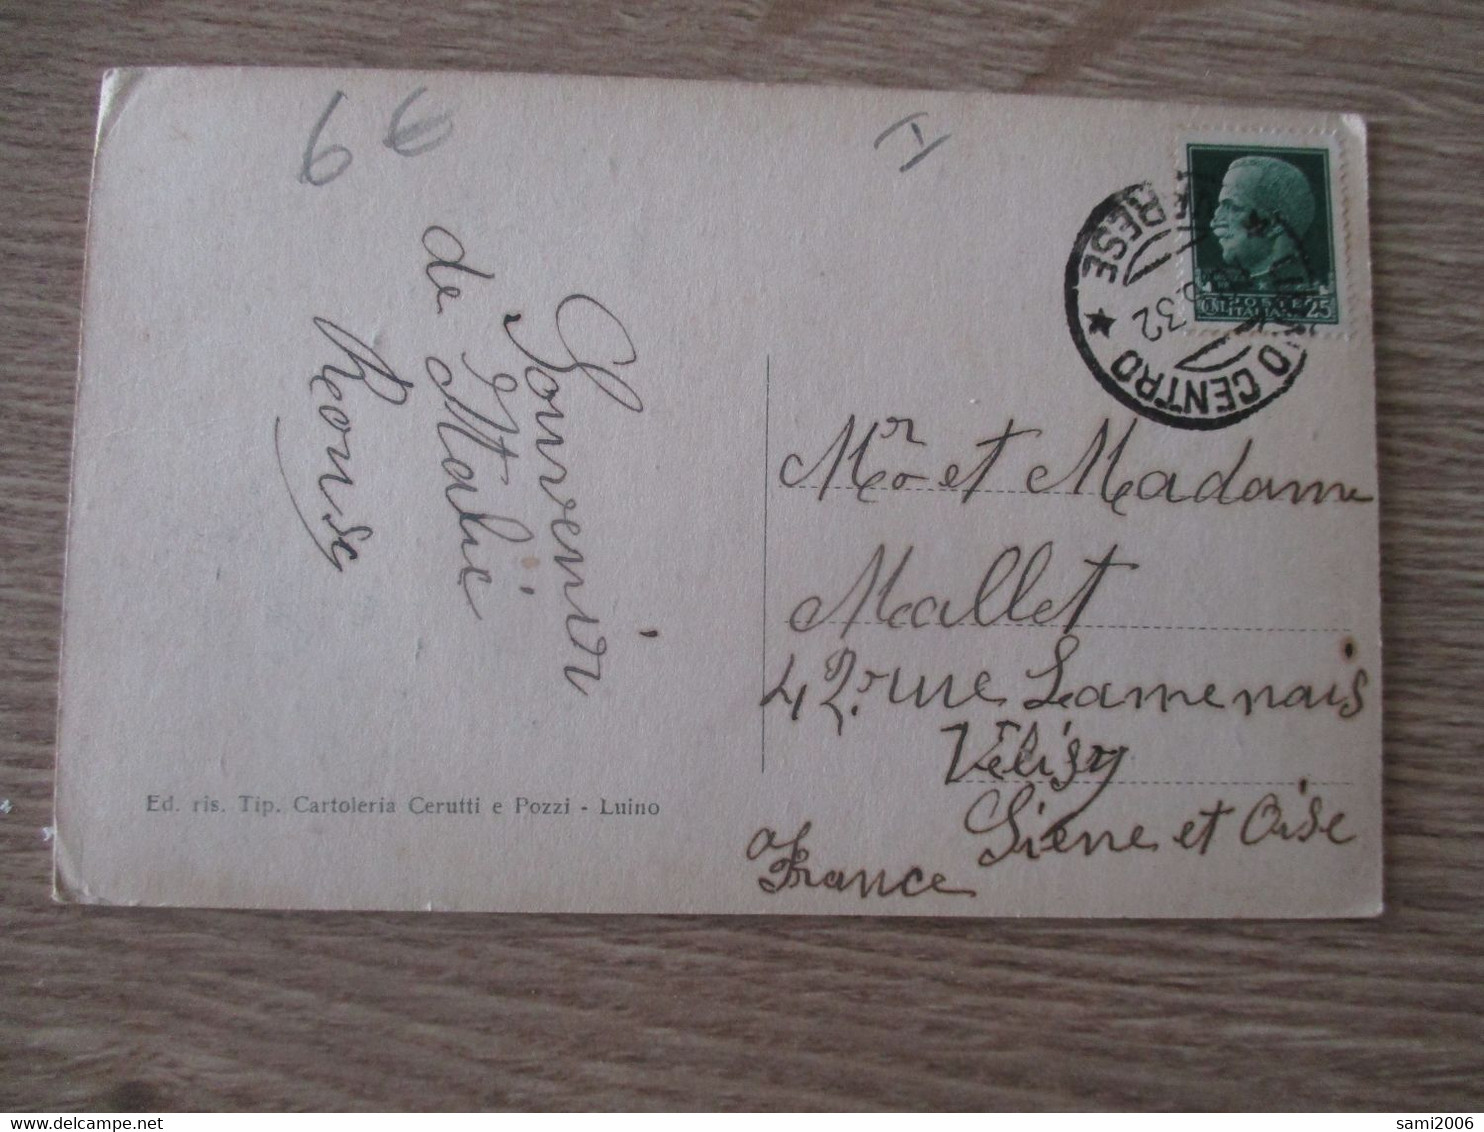 Souvenir
de Italie
Ed. ris. Tip. Cartoleria Cerutti e Pozzi - Luino
O CENTRO ★ VARESE
32
POSTE
ITALIANE
25
Mr et Madame
Mallet
42 rue Lamenais
Vélizy
Siene et Oise
France
sami2006